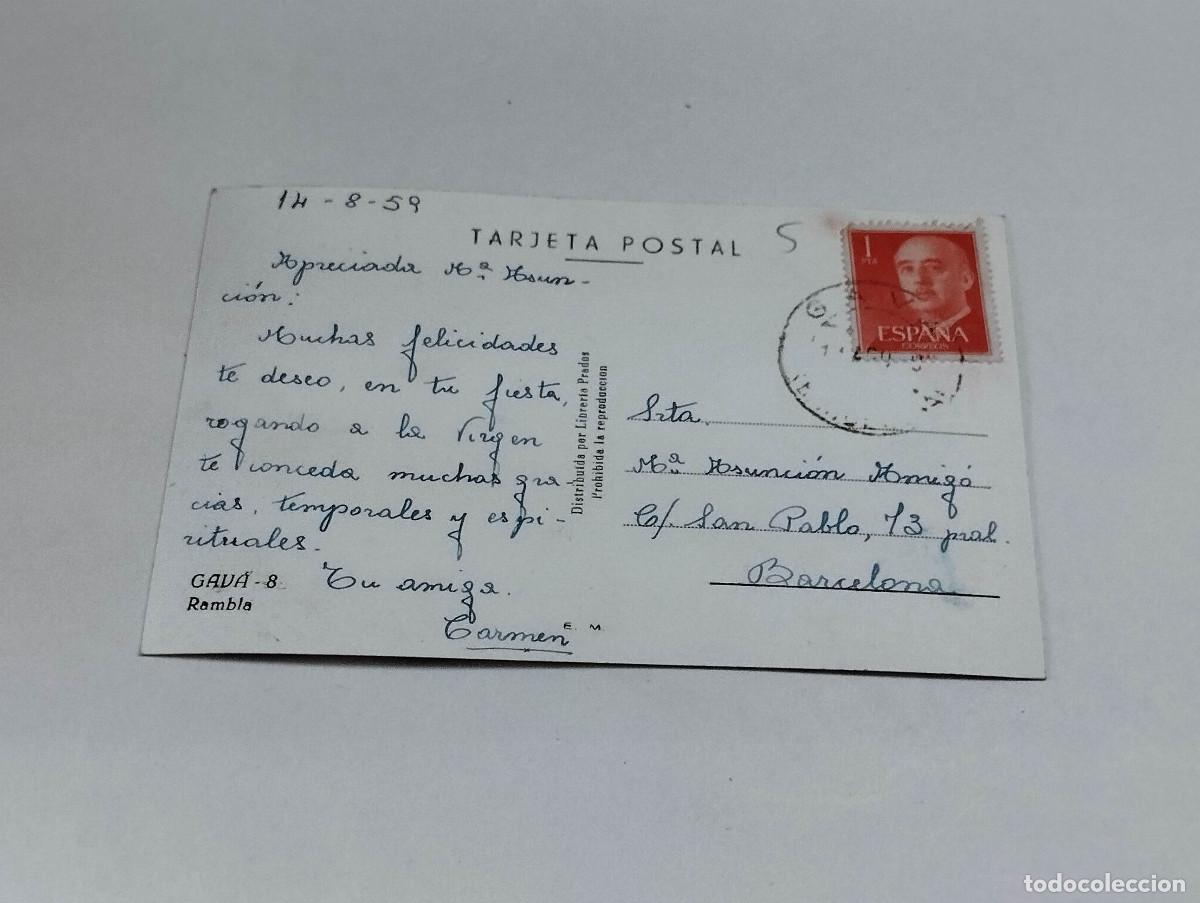 14-8-59
TARJETA POSTAL
5
Apreciada Mª Asun-
ción:
Muchas felicidades
te deseo, en tu fiesta,
rogando a la Virgen
te conceda muchas gra-
cias, temporales y espi-
rituales.
Tu amiga.
Carmen
GAVÁ - 8
Rambla
E. M.
Distribuida por Librería Prados
Prohibida la reproduccion
1
PTA
ESPAÑA
CORREOS
Srta.
Mª Asunción Amigó
C/. San Pablo, 73 pral.
Barcelona
todocoleccion